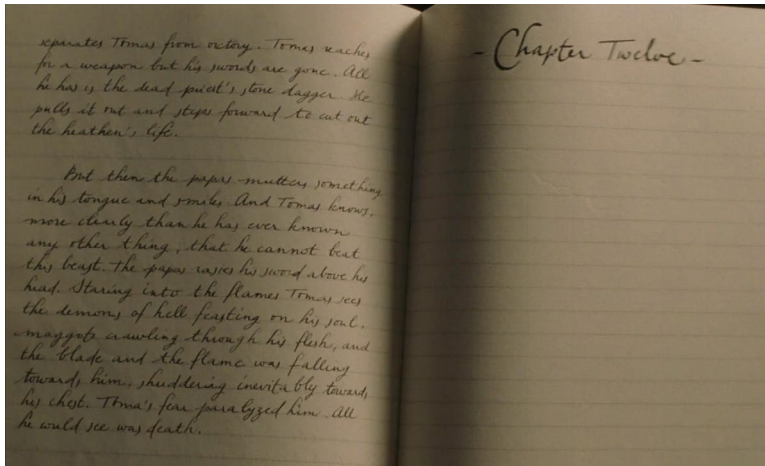 separates Tomas from victory. Tomas reaches
for a weapon but his swords are gone. All
he has is the dead priest's stone dagger. He
pulls it out and steps forward to cut out
the heathen's life.
But then the papas mutters something
in his tongue and smiles. And Tomas knows,
more clearly than he has ever known
any other thing, that he cannot beat
this beast. The papas rasies his sword above his
head. Staring into the flames Tomas sees
the demons of hell feasting on his soul,
maggots crawling through his flesh, and
the blade and the flame was falling
towards him, shuddering inevitably towards
his chest. Toma's fear paralyzed him. All
he would see was death.
- Chapter Twelve -